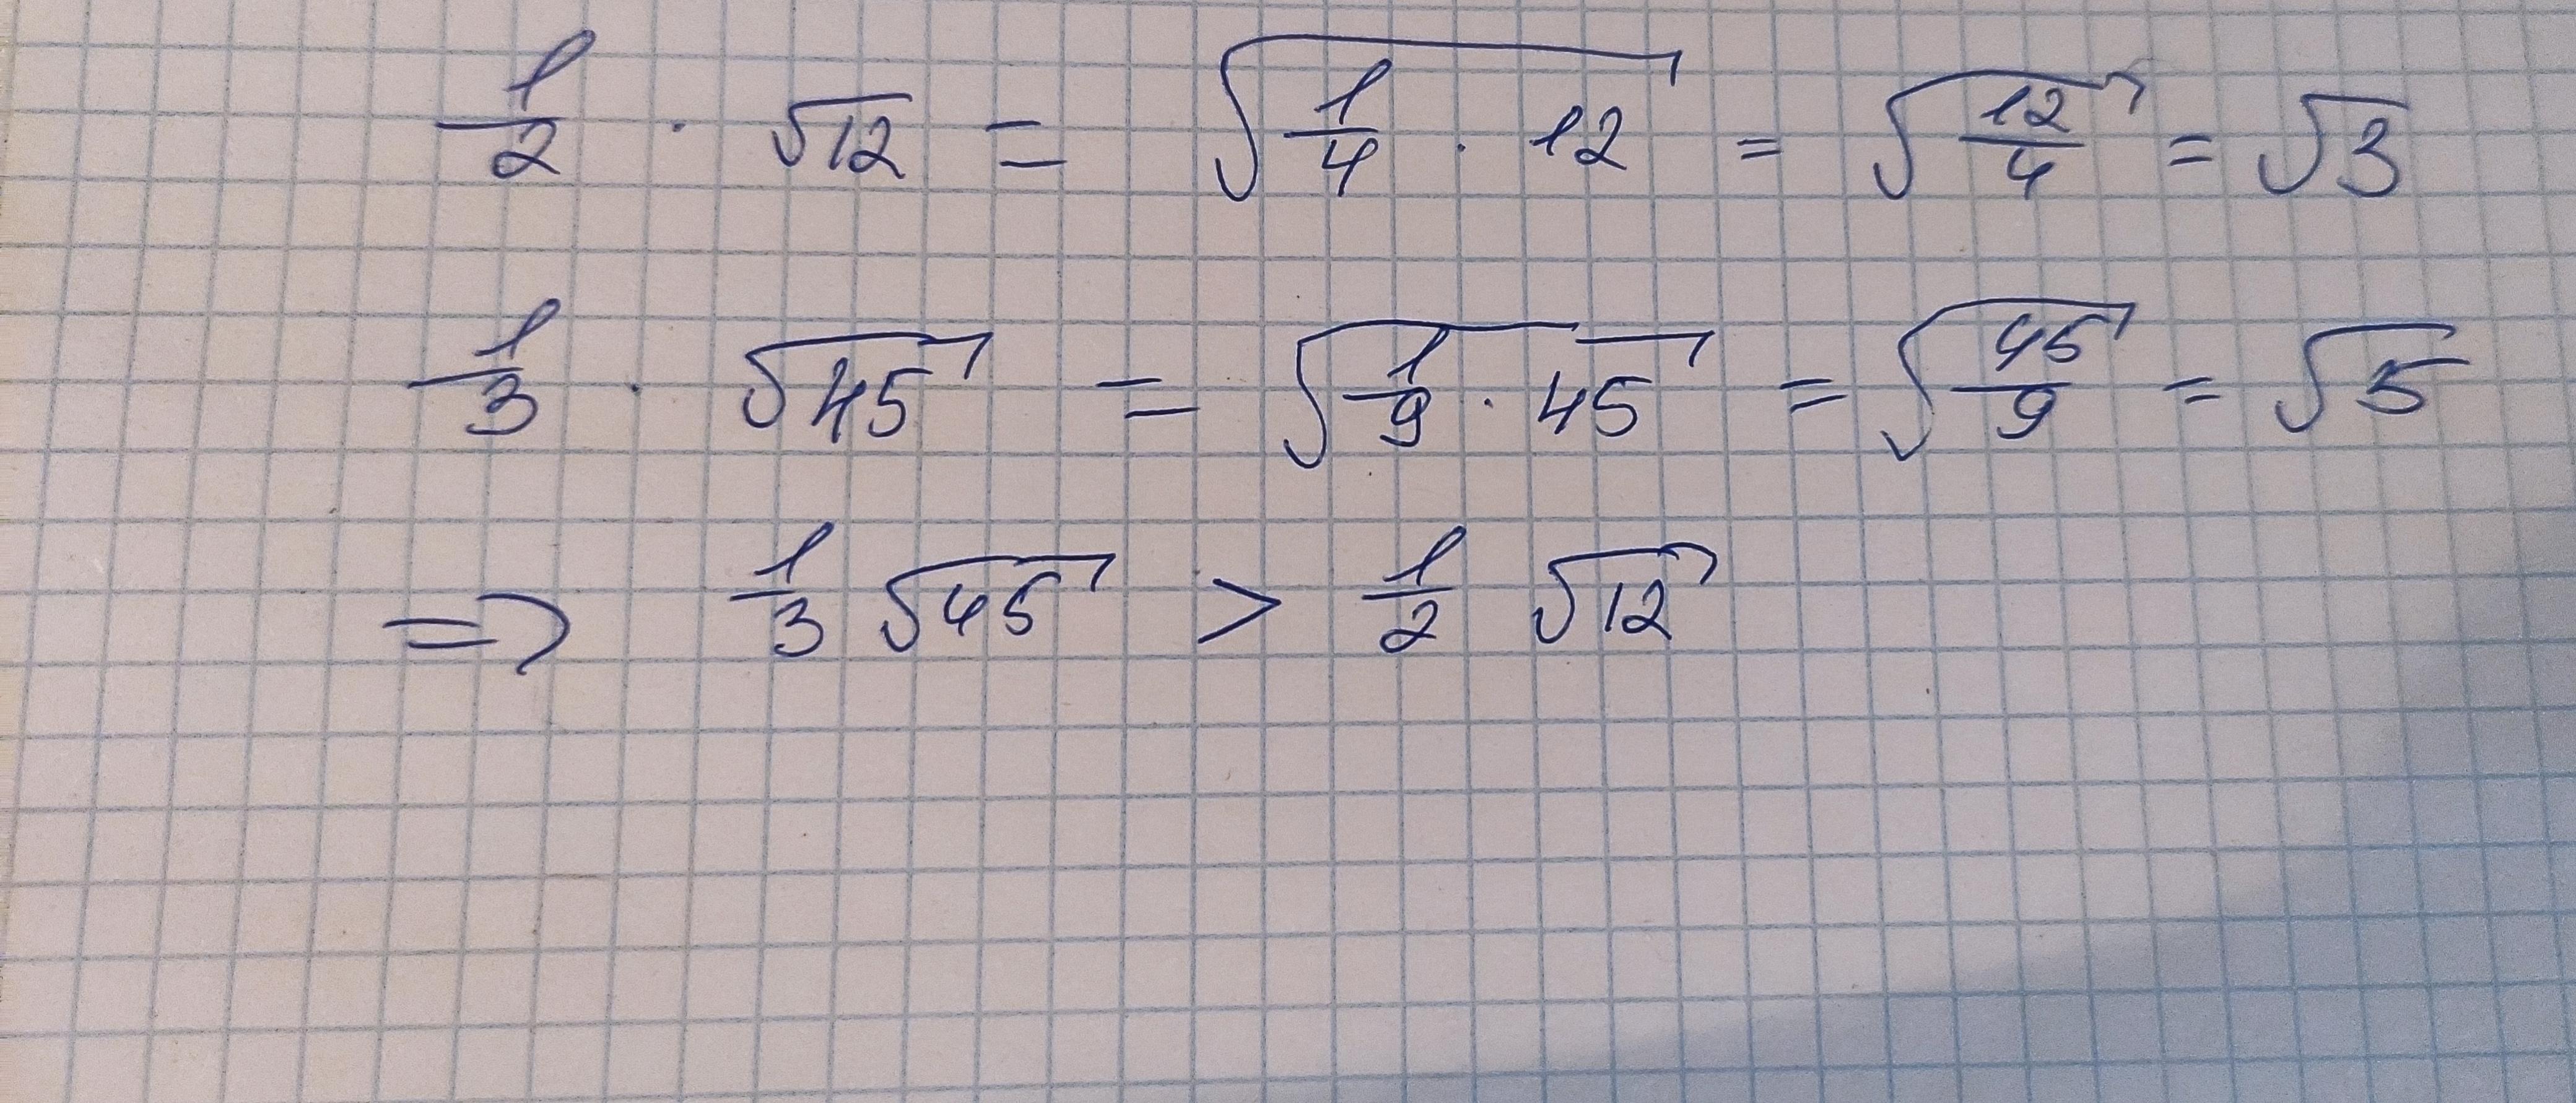 1/2 · √12 = √(1/4 · 12) = √(12/4) = √3
1/3 · √45 = √(1/9 · 45) = √(45/9) = √5
=> 1/3 √45 > 1/2 √12